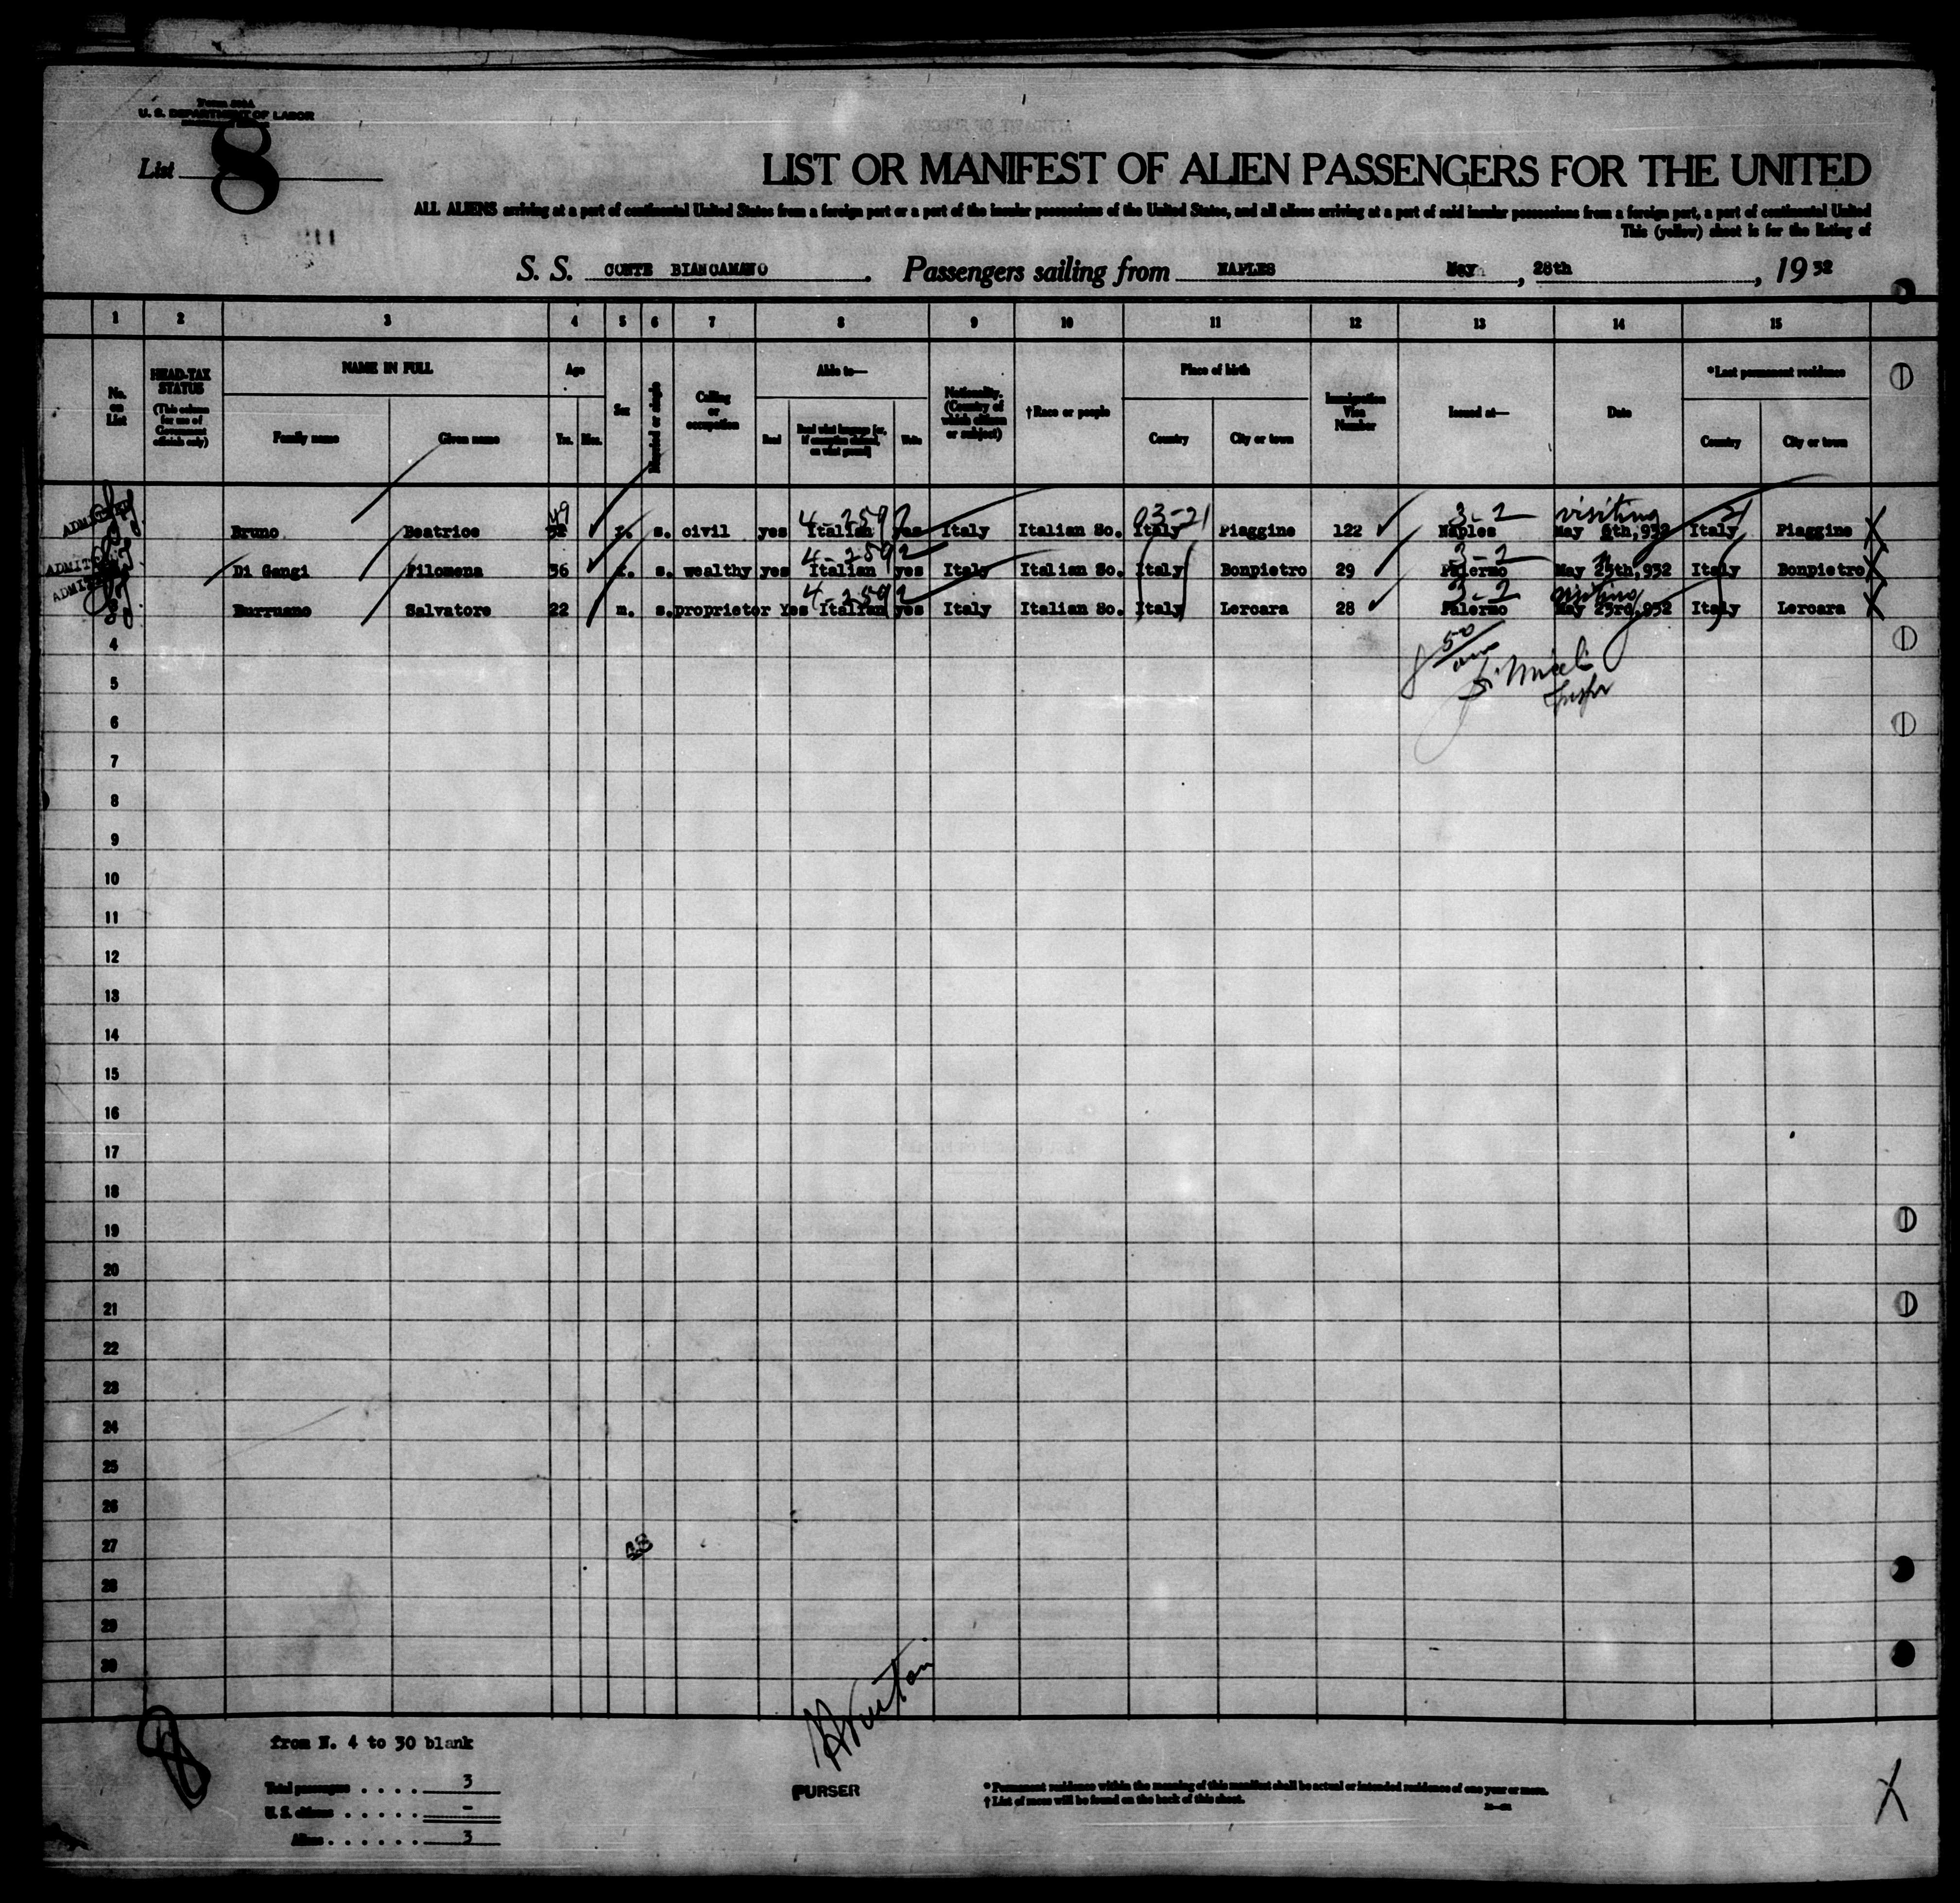 Form 500A
U. S. DEPARTMENT OF LABOR
List 8
LIST OR MANIFEST OF ALIEN PASSENGERS FOR THE UNITED
ALL ALIENS arriving at a port of continental United States from a foreign port or a port of the insular possessions of the United States, and all aliens arriving at a port of said insular possessions from a foreign port, a port of continental United
This (yellow) sheet is for the listing of
S. S. CONTE BIANCAMANO. Passengers sailing from NAPLES May, 28th, 1932
1 2 3 4 5 6 7 8 9 10 11 12 13 14 15
No. on List
HEAD-TAX STATUS (This column for use of Government officials only)
NAME IN FULL Family name Given name
Age Yrs. Mos.
Sex
Married or single
Calling or occupation
Able to— Read Read what language [or, if exemption claimed, on what ground] Write
Nationality. (Country of which citizen or subject)
†Race or people
Place of birth Country City or town
Immigration Visa Number
Issued at—
Date
*Last permanent residence Country City or town
49 4-2592 03-21 3-2 visiting 21
ADMITTED Bruno Beatrice 32 f. s. civil yes Italian yes Italy Italian So. Italy Piaggine 122 Naples May 6th,932 Italy Piaggine X
4-2592 3-2
ADMITTED Di Gangi Filomena 36 f. s. wealthy yes Italian yes Italy Italian So. Italy Bonpietro 29 Palermo May 25th,932 Italy Bonpietro X
4-2592 3-2 visiting
ADMITTED Burruano Salvatore 22 m. s. proprietor Yes Italian yes Italy Italian So. Italy Lercara 28 Palermo May 23rd,932 Italy Lercara X
4
5
6
7
8
9
10
11
12
13
14
15
16
17
18
19
20
21
22
23
24
25
26
27
28
29
30
from N. 4 to 30 blank
Total passengers . . . . 3
U. S. citizens . . . . . -
Aliens . . . . . . 3
PURSER
* Permanent residence within the meaning of this manifest shall be actual or intended residence of one year or more.
† List of races will be found on the back of this sheet.
X